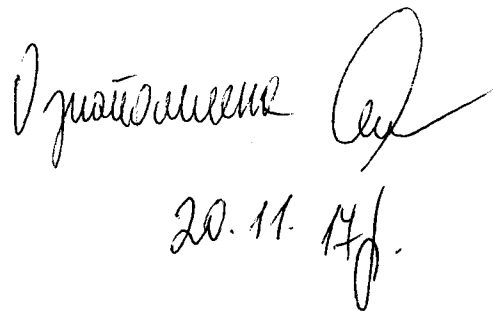 Ознайомлена
20.11.17р.